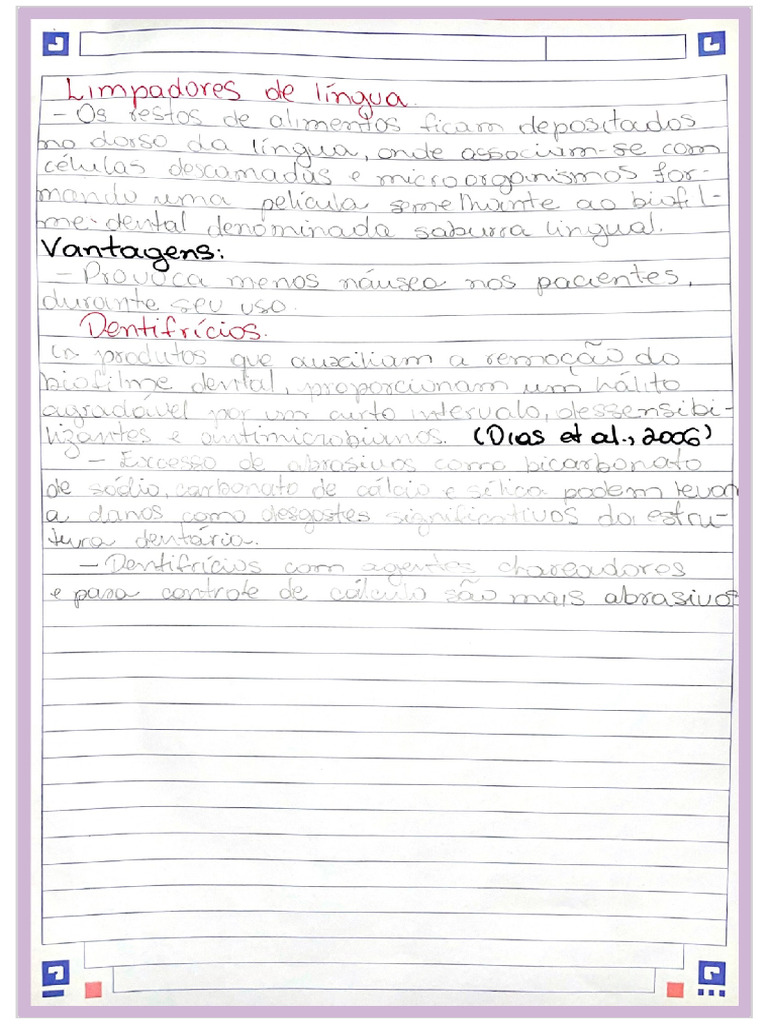 Limpadores de língua.
- Os restos de alimentos ficam depositados
no dorso da língua, onde associam-se com
células descamadas e microorganismos for-
mando uma película semelhante ao biofil-
me dental denominada saburra lingual.
Vantagens:
- Provoca menos náusea nos pacientes,
durante seu uso.
Dentifrícios.
↳ produtos que auxiliam a remoção do
biofilme dental, proporcionam um hálito
agradável por um curto intervalo, dessensibi-
lizantes e antimicrobianos. (Dias et al., 2006)
- Excesso de abrasivos como bicarbonato
de sódio, carbonato de cálcio e sílica podem levar
a danos como desgastes significativos da estru-
tura dentária.
- Dentifrícios com agentes clareadores
e para controle de cálculo são mais abrasivos